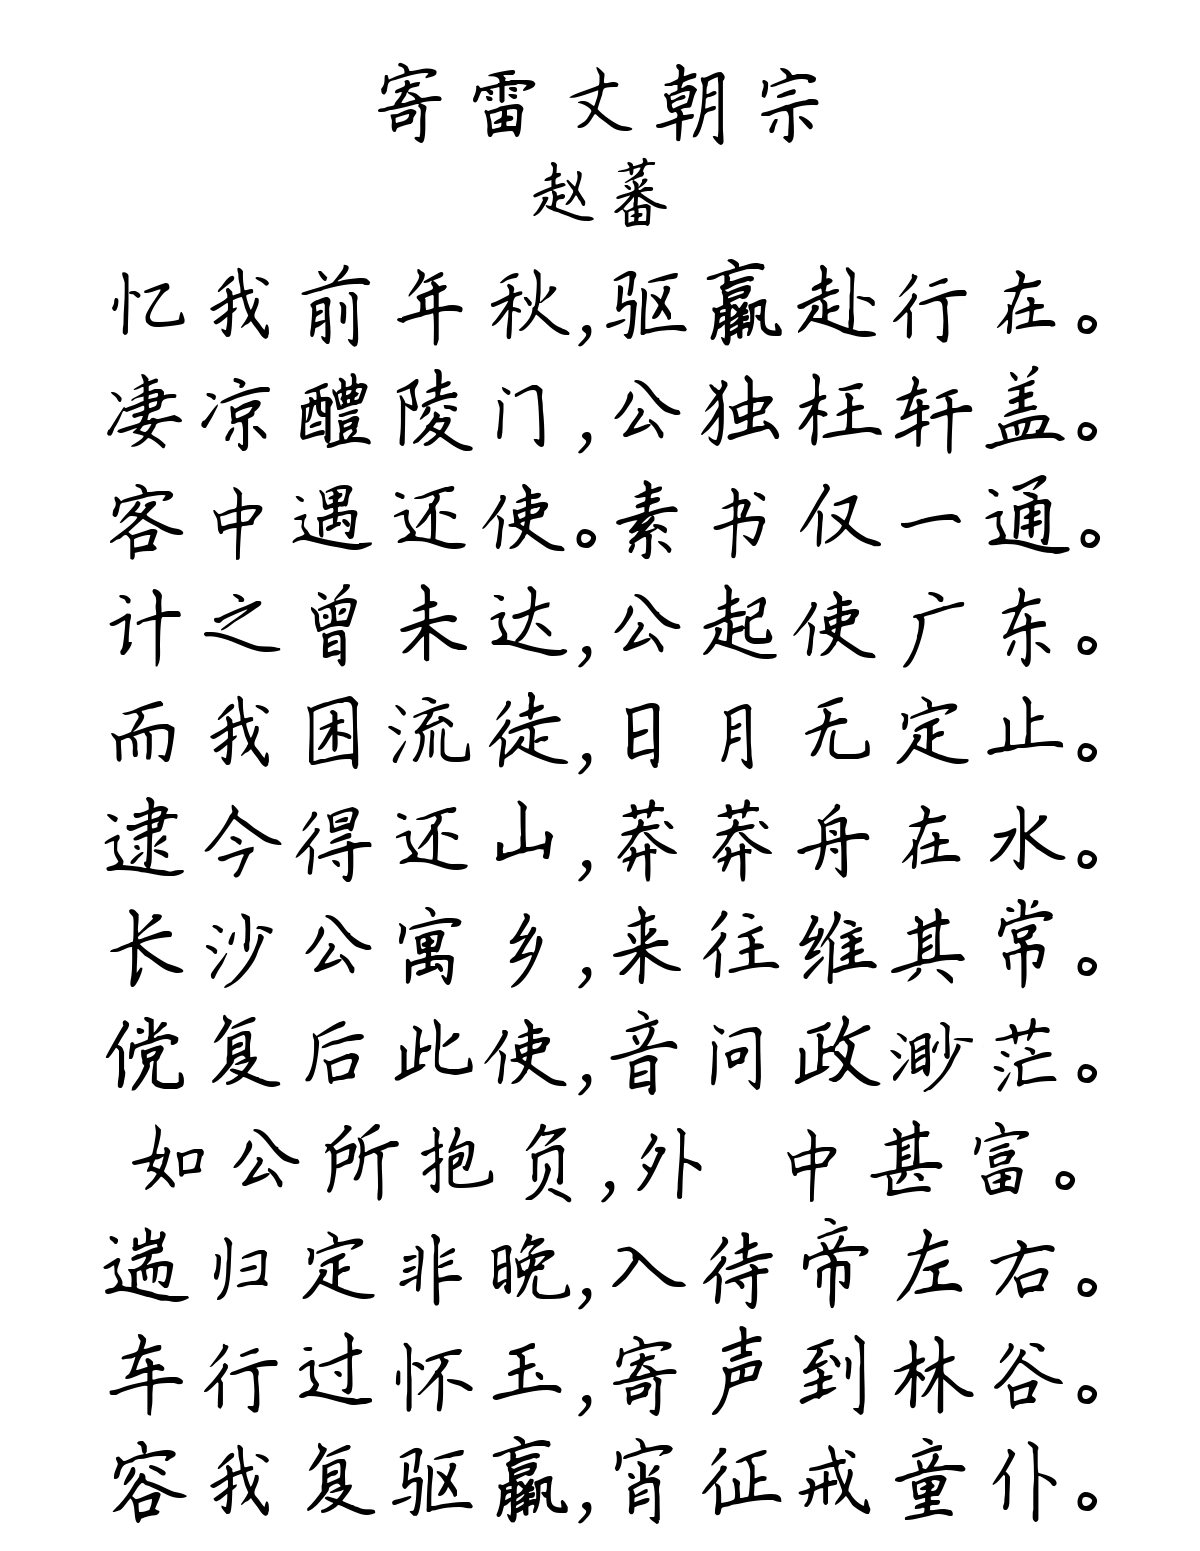 寄雷丈朝宗
赵蕃
忆我前年秋,驱羸赴行在。
凄凉醴陵门,公独枉轩盖。
客中遇还使。素书仅一通。
计之曾未达,公起使广东。
而我困流徒,日月无定止。
逮今得还山,莽莽舟在水。
长沙公寓乡,来往维其常。
傥复后此使,音问政渺茫。
如公所抱负,外 中甚富。
遄归定非晚,入待帝左右。
车行过怀玉,寄声到林谷。
容我复驱羸,宵征戒童仆。